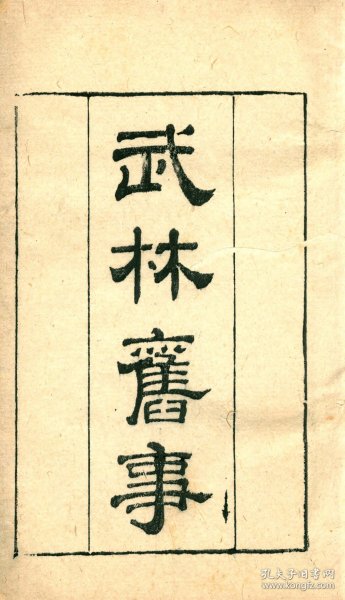 武林舊事
孔夫子旧书网
www.kongfz.com